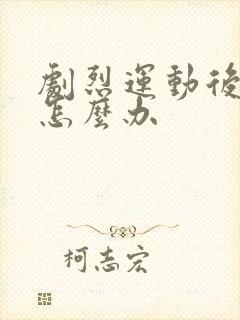 劇烈運動後
怎麼办
柯志宏